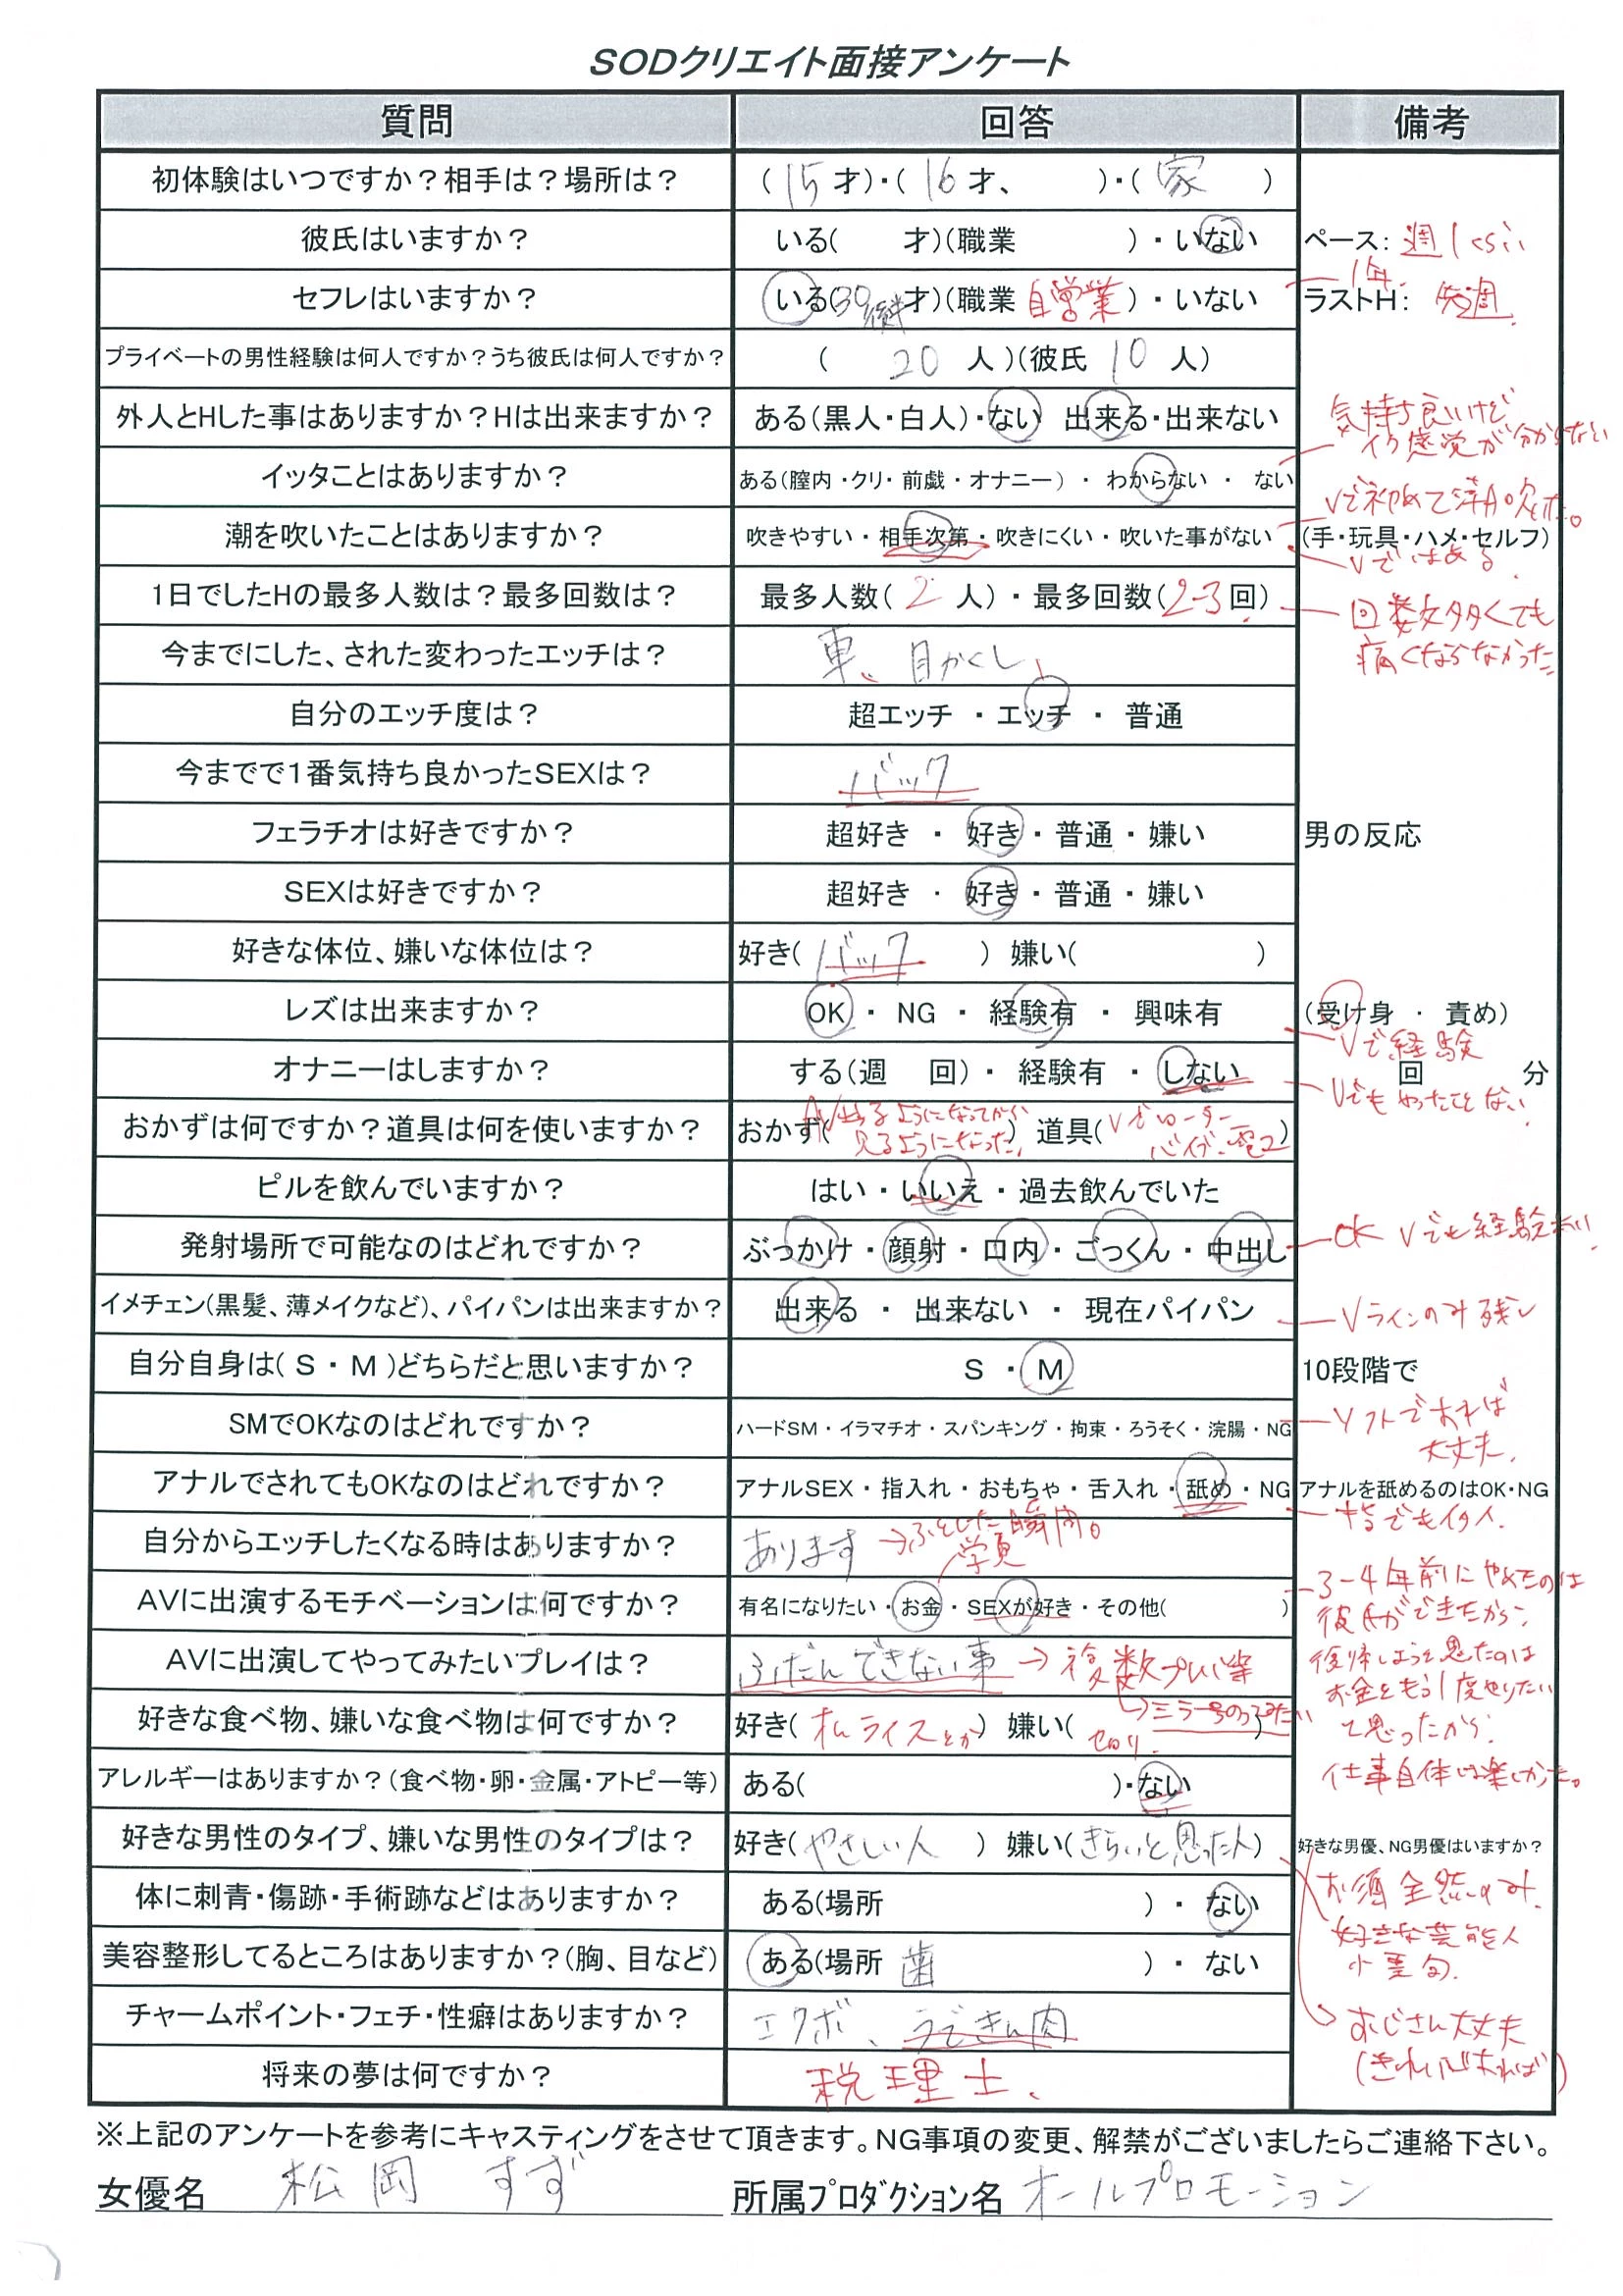 SODクリエイト面接アンケート
質問 回答 備考
初体験はいつですか？相手は？場所は？ (15才)・(16才、 )・(家 )
彼氏はいますか？ いる( 才)(職業 )・いない ペース：週1くらい
1年
セフレはいますか？ いる(30後半才)(職業 自営業)・いない ラストH：先週
プライベートの男性経験は何人ですか？うち彼氏は何人ですか？ ( 20 人)(彼氏 10 人)
外人とHした事はありますか？Hは出来ますか？ ある(黒人・白人)・ない 出来る・出来ない
気持ち良いけど
イク感覚が分からない
イッタことはありますか？ ある(膣内・クリ・前戯・オナニー)・ わからない ・ ない
Vで初めて潮吹いた。
潮を吹いたことはありますか？ 吹きやすい・相手次第・吹きにくい・吹いた事がない (手・玩具・ハメ・セルフ)
Vではある
1日でしたHの最多人数は？最多回数は？ 最多人数(2人)・最多回数(2-3回)
回数多くても
痛くならなかった
今までにした、された変わったエッチは？ 車、目かくし
自分のエッチ度は？ 超エッチ ・ エッチ ・ 普通
今までで1番気持ち良かったSEXは？ バック
フェラチオは好きですか？ 超好き ・ 好き・普通・嫌い 男の反応
SEXは好きですか？ 超好き ・ 好き・普通・嫌い
好きな体位、嫌いな体位は？ 好き(バック ) 嫌い( )
レズは出来ますか？ OK ・ NG ・ 経験有 ・ 興味有 (受け身 ・ 責め)
Vで経験
オナニーはしますか？ する(週 回)・ 経験有 ・ しない 回 分
Vでもやったことない
おかずは何ですか？道具は何を使いますか？ おかず(AV出るようになってから見るようになった) 道具(Vでローター バイブ、電マ)
ピルを飲んでいますか？ はい・いいえ・過去飲んでいた
発射場所で可能なのはどれですか？ ぶっかけ・顔射・口内・ごっくん・中出し OK Vでも経験
イメチェン(黒髪、薄メイクなど)、パイパンは出来ますか？ 出来る ・ 出来ない ・ 現在パイパン Vラインのみ残し
自分自身は( S ・ M )どちらだと思いますか？ S ・ M 10段階で
SMでOKなのはどれですか？ ハードSM・イラマチオ・スパンキング・拘束・ろうそく・浣腸・NG ソフトであれば
大丈夫
アナルでされてもOKなのはどれですか？ アナルSEX・指入れ・おもちゃ・舌入れ・舐め・NG アナルを舐めるのはOK・NG
指でもイタイ
自分からエッチしたくなる時はありますか？ あります →ふとした瞬間。
学費
AVに出演するモチベーションは何ですか？ 有名になりたい・お金・SEXが好き・その他( )
3-4年前にやめたのは
彼氏ができたから
復帰しようと思ったのは
お金ともう1度やりたい
て思ったから
仕事自体は楽しかった。
AVに出演してやってみたいプレイは？ ふだんできない事 →複数プレイ等
好きな食べ物、嫌いな食べ物は何ですか？ 好き(オムライスとか) 嫌い(セロリ )
アレルギーはありますか？(食べ物・卵・金属・アトピー等) ある( )・ない
好きな男性のタイプ、嫌いな男性のタイプは？ 好き(やさしい人 ) 嫌い(きらいと思った人) 好きな男優、NG男優はいますか？
体に刺青・傷跡・手術跡などはありますか？ ある(場所 )・ ない
好きな芸能人
小栗旬
美容整形してるところはありますか？(胸、目など) ある(場所 歯 )・ ない
チャームポイント・フェチ・性癖はありますか？ エクボ、うできん肉
おじさん大丈夫
(きれいであれば)
将来の夢は何ですか？ 税理士
※上記のアンケートを参考にキャスティングをさせて頂きます。NG事項の変更、解禁がございましたらご連絡下さい。
女優名 松岡 すず 所属プロダクション名 オールプロモーション